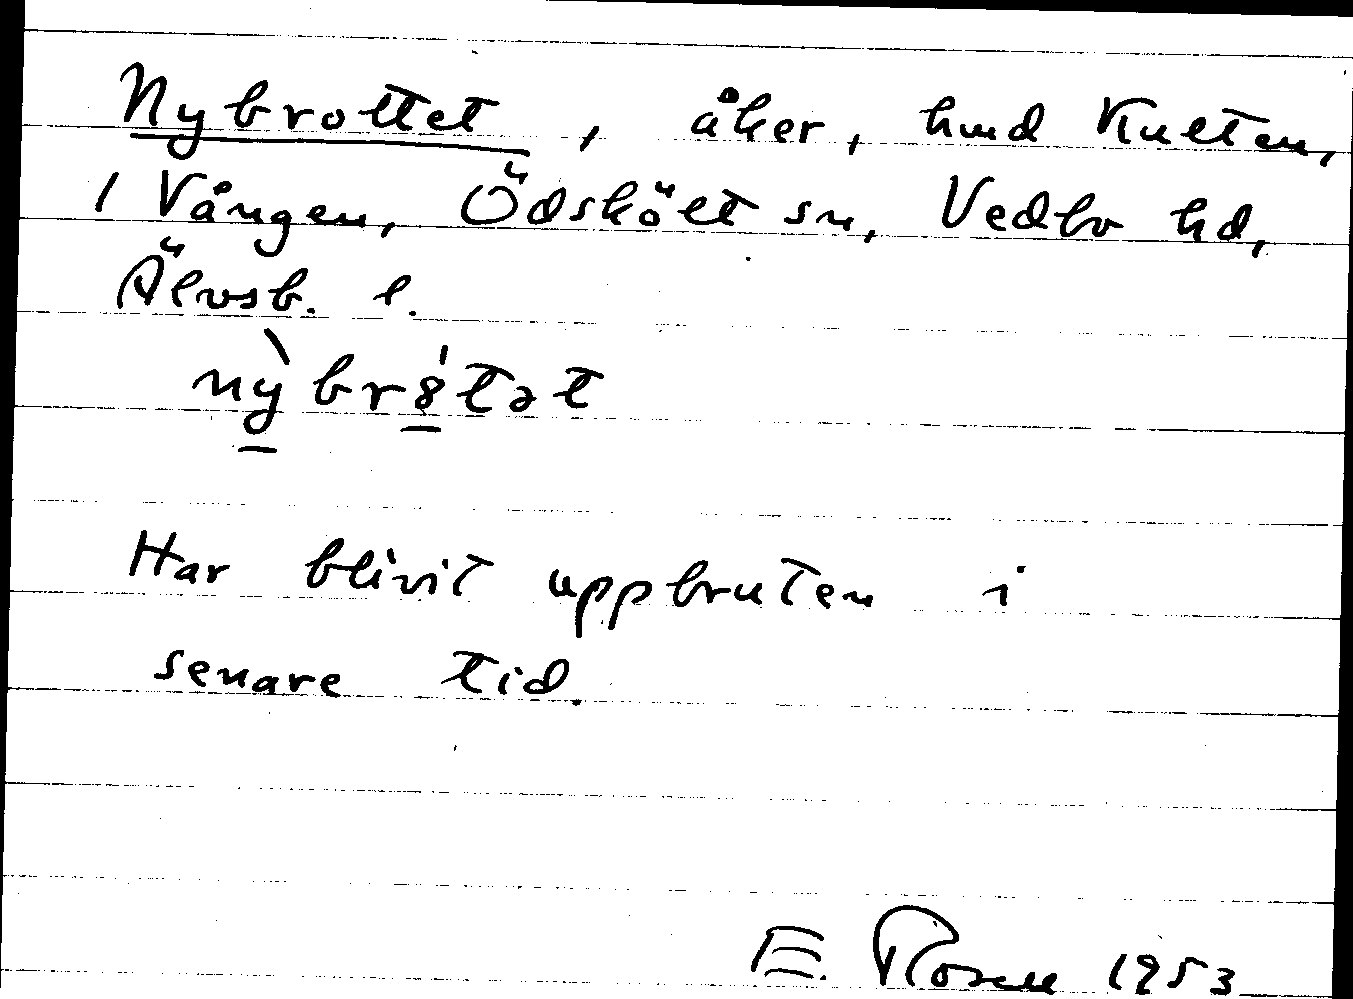 Nybrottet, åker, hmd Kulten,
1 Vången, Ödskölt sn, Vedbo hd,
Älvsb. l.
nỳbr8́tət
Har blivit uppbruten i
senare tid.
E. Rosell 1953